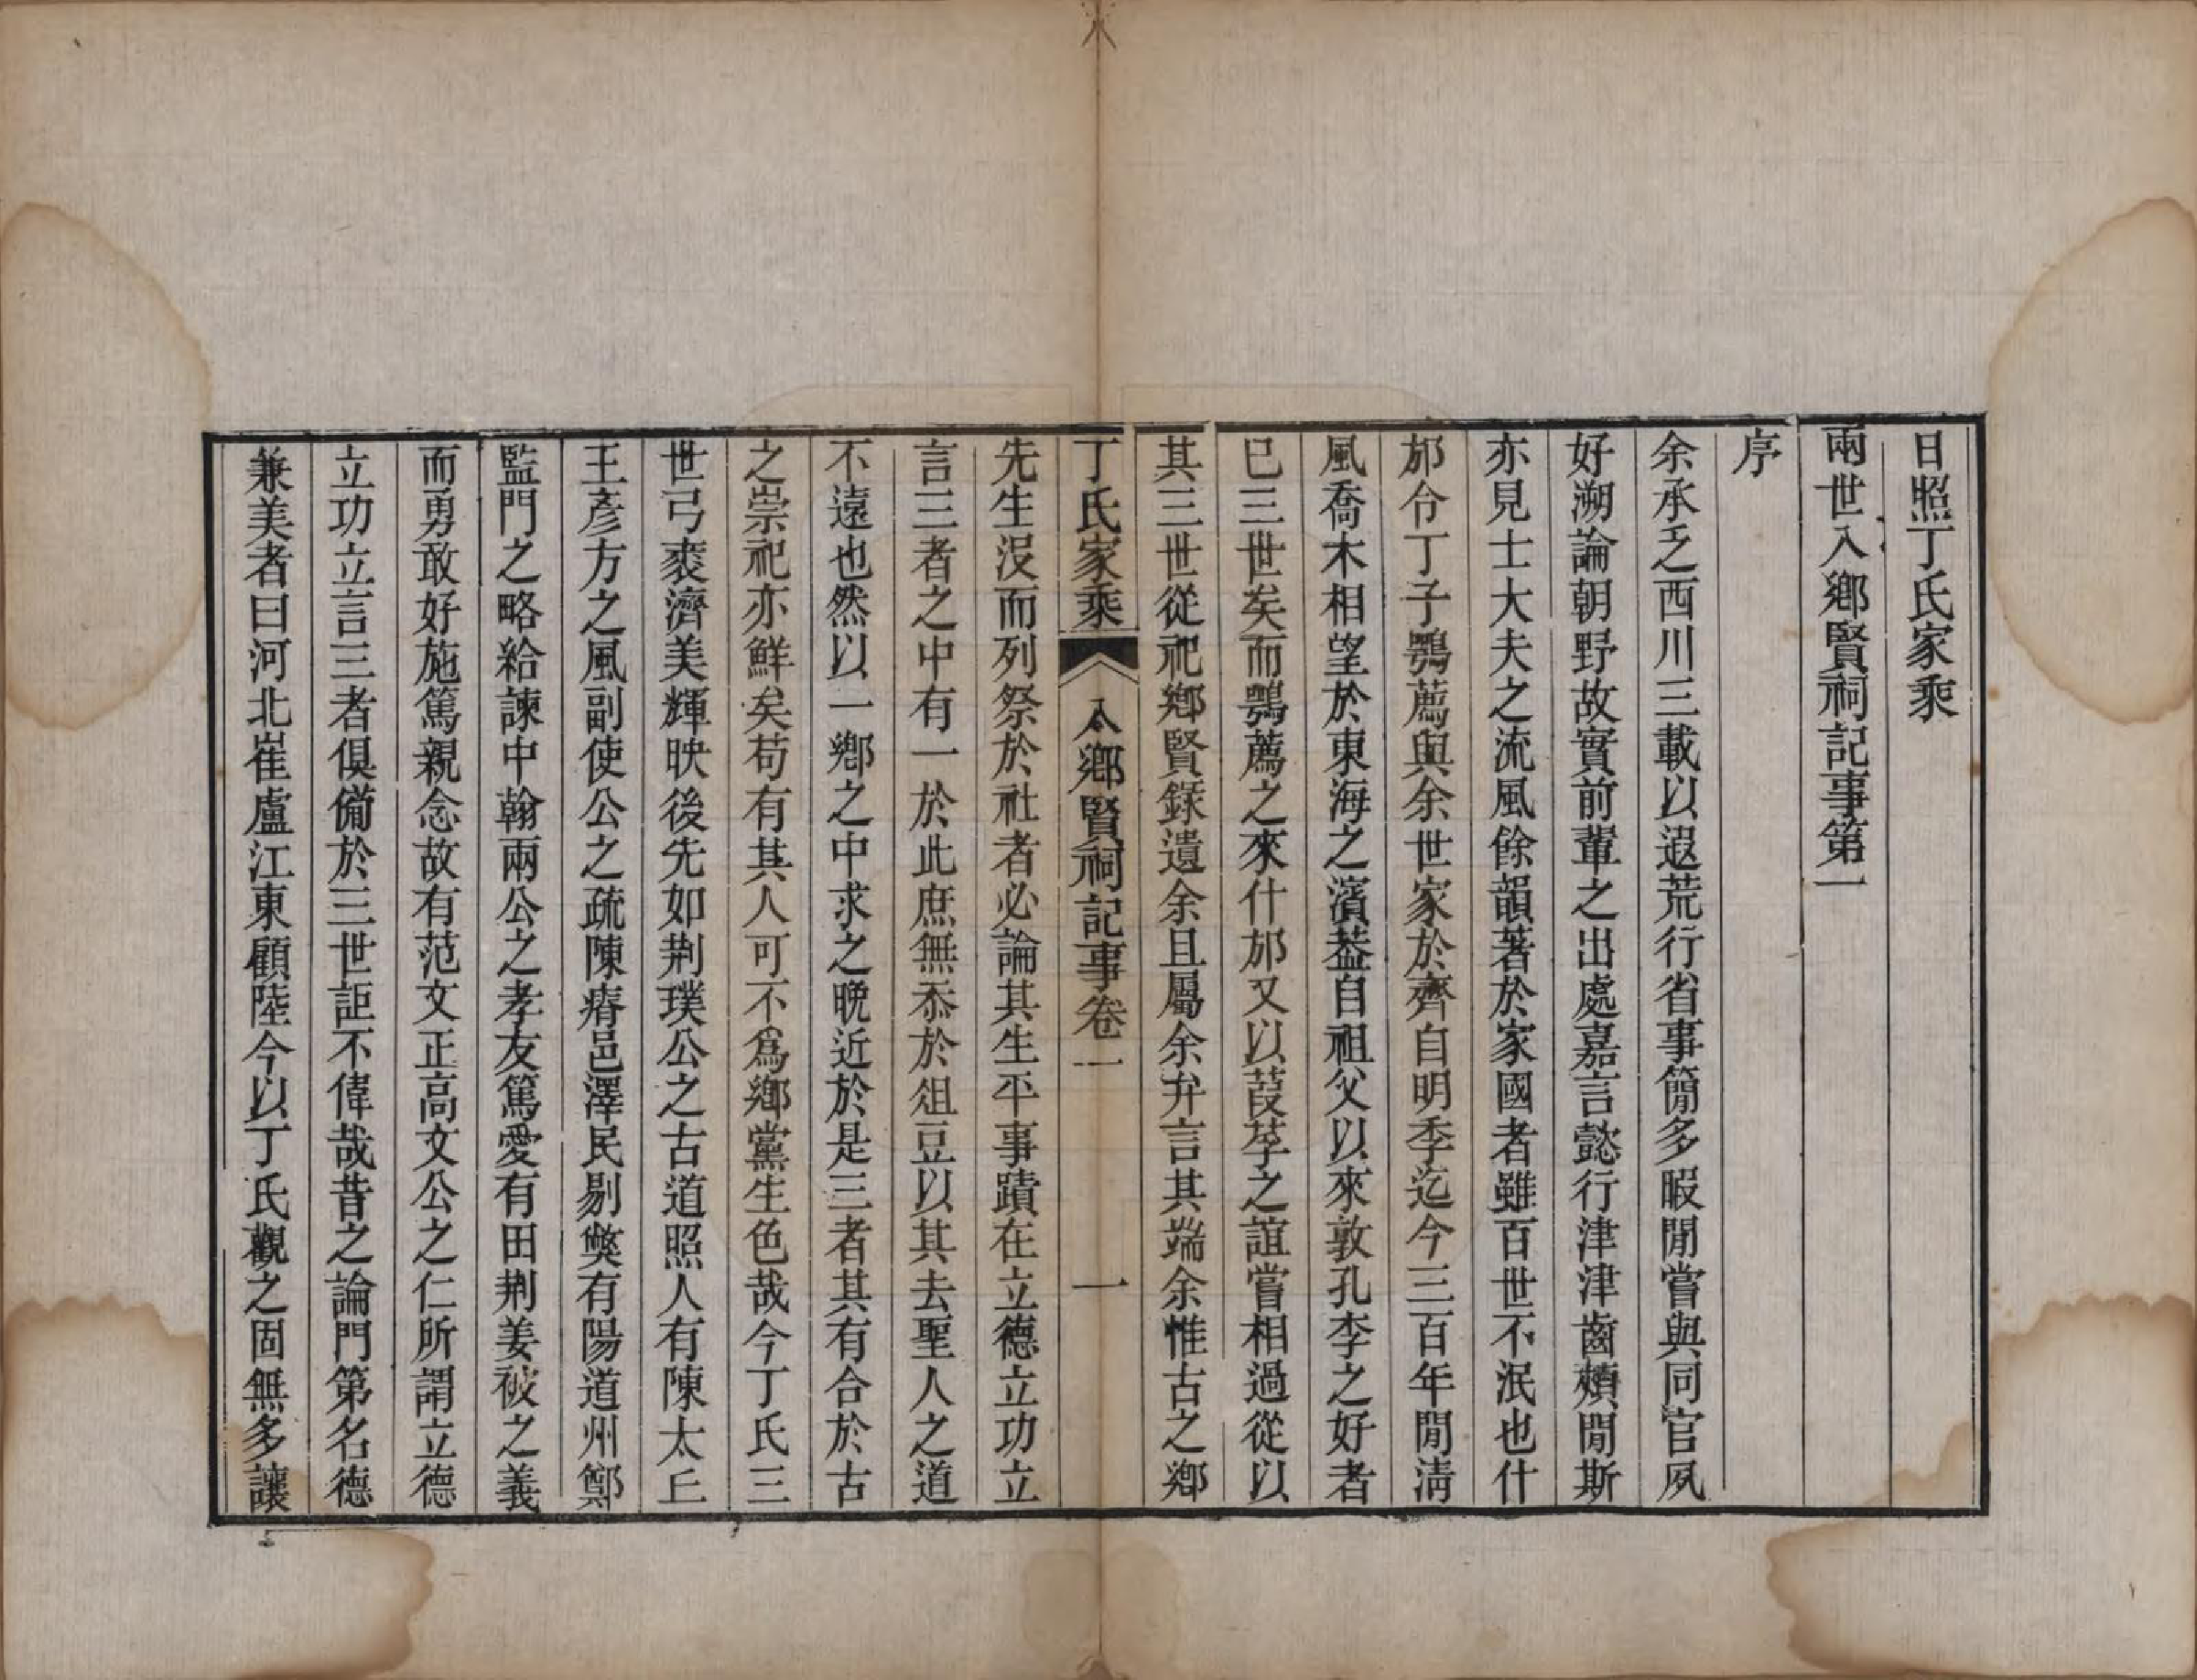 日照丁氏家乘
兩世入鄉賢祠記事第一
序
余承乏西川三載以遐荒行省事簡多暇閒嘗與同官夙
好溯論朝野故實前輩之出處嘉言懿行津津齒頰閒斯
亦見士大夫之流風餘韻著於家國者雖百世不泯也什
邡令丁子鶚薦與余世家於齊自明季迄今三百年閒淸
風喬木相望於東海之濱葢自祖父以來敦孔李之好者
已三世矣而鶚薦之來什邡又以葭莩之誼嘗相過從以
其三世從祀鄉賢錄遺余且屬余弁言其端余惟古之鄉
丁氏家乘
入鄉賢祠記事卷一
一
先生沒而列祭於社者必論其生平事蹟在立德立功立
言三者之中有一於此庶無忝於俎豆以其去聖人之道
不遠也然以一鄉之中求之晩近於是三者其有合於古
之崇祀亦鮮矣苟有其人可不爲鄉黨生色哉今丁氏三
世弓裘濟美輝映後先如荆璞公之古道照人有陳太丘
王彥方之風副使公之疏陳瘠邑澤民剔獘有陽道州鄭
監門之略給諫中翰兩公之孝友篤愛有田荆姜被之義
而勇敢好施篤親念故有范文正高文公之仁所謂立德
立功立言三者俱備於三世詎不偉哉昔之論門第名德
兼美者曰河北崔盧江東顧陸今以丁氏觀之固無多讓